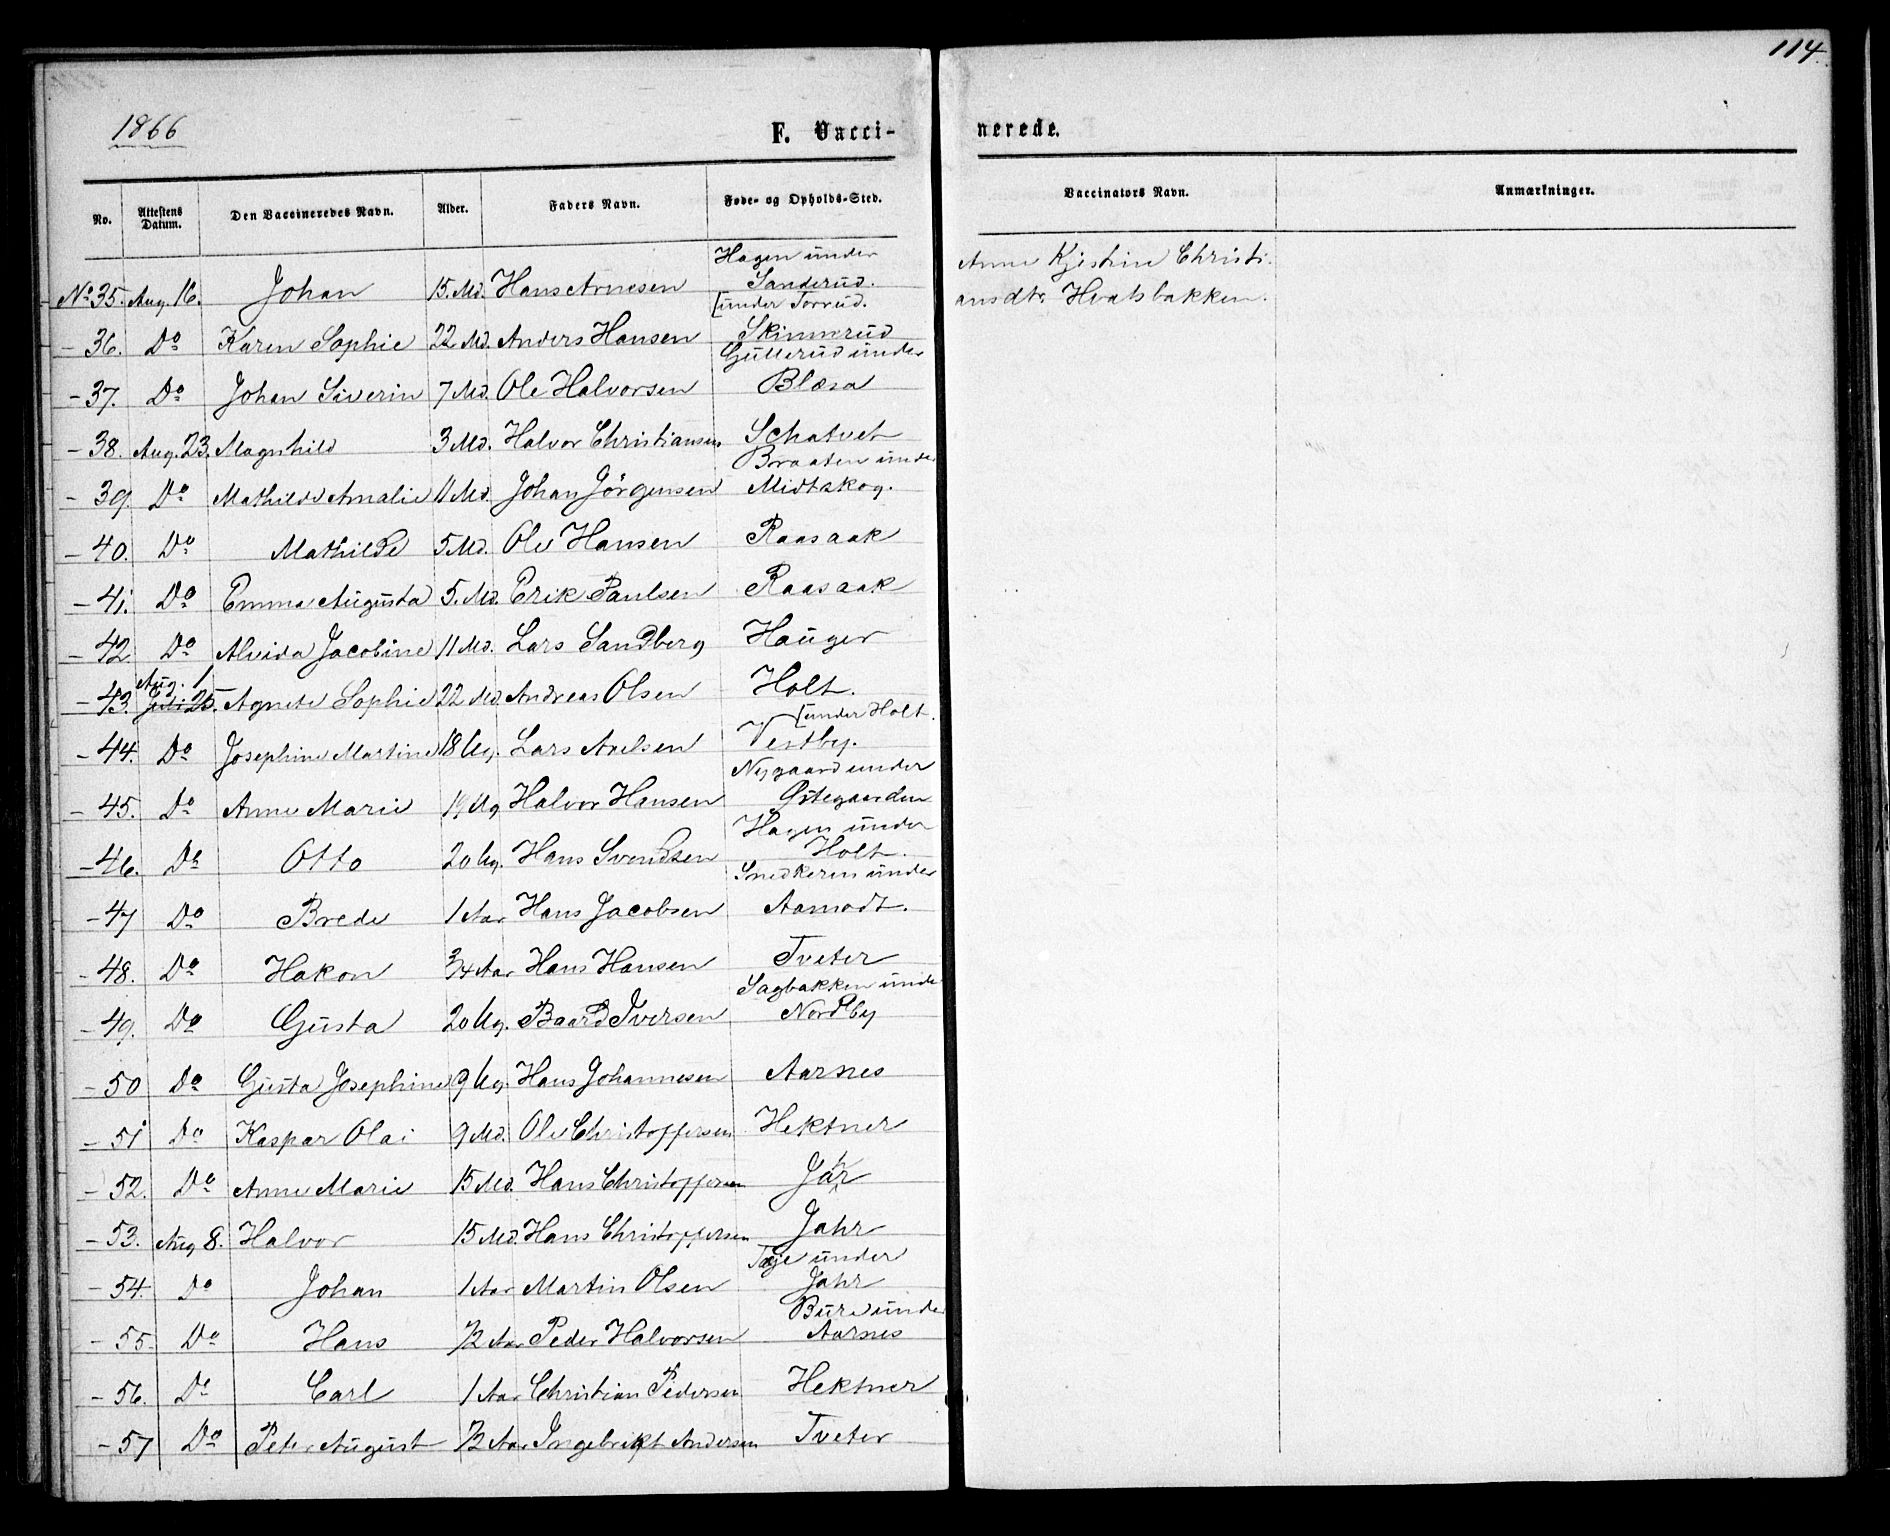 114.
1866
F. Vacci-
nerede.
No. Attestens Datum. Den Vaccineredes Navn. Alder. Faders Navn. Føde- og Opholds-Sted. Vaccinators Navn. Anmærkninger.
Hagen under
No 35. Aug. 16. Johan 15. Md. Hans Arnesen Sanderud. Anne Kjestine Christi-
ansdtr. Hvalsbakken.
[under Torrud.
- 36. Do Karen Sophie 22 Md. Anders Hansen Skinnerud
Gullerud under
- 37. Do Johan Siverin 7 Md. Ole Halvorsen Blæsa
- 38. Aug. 23. Magnhild 3 Md. Halvor Christiansen Schatvet
Braaten under
- 39. Do Mathilde Amalie 11 Md. Johan Jörgensen Midtskog.
- 40. Do Mathilde 5 Md. Ole Hansen Raasaak
- 41. Do Emma Augusta 5. Md. Erik Paulsen Raasaak
- 42 Do Alvida Jacobine 11 Md. Lars Sandberg Hauger
Aug. 1
- 43. Juli 25. Agnete Sophie 22 Md. Andreas Olsen Holt.
[under Holt.
- 44. Do Josephine Martine 18 Ug. Lars Axelsen Vestby.
Nygaard under
- 45. Do Anne Marie 19 Ug Halvor Hansen Østegaarden
Hagen under
- 46. Do Otto 20 Ug. Hans Svendsen Holt.
Snedkeren under
- 47 Do Brede 1 Aar Hans Jacobsen Aamodt.
- 48. Do Hakon 3/4 Aar Hans Hansen Tveter
Sagbakken under
- 49. Do Gusta 20 Ug. Baard Iversen Nordby
- 50 Do Gusta Josephine 9 Ug. Hans Johannesen Aarnes
- 51 Do Kaspar Olai 9 Md. Ole Christoffersen Hektner
- 52. Do Anne Marie 15 Md. Hans Christoffersen Jahr
- 53. Aug 8. Halvor 15 Md. Hans Christoffersen Jahr
Tæje under
- 54. Do Johan 1 Aar Martin Olsen Jahr
Bure under
- 55. Do Hans 1/2 Aar Peder Halvorsen Aarnes
- 56. Do Carl 1 Aar Christian Pedersen Hektner
- 57 Do Peter August 1/2 Aar Ingebrigt Andersen Tveter